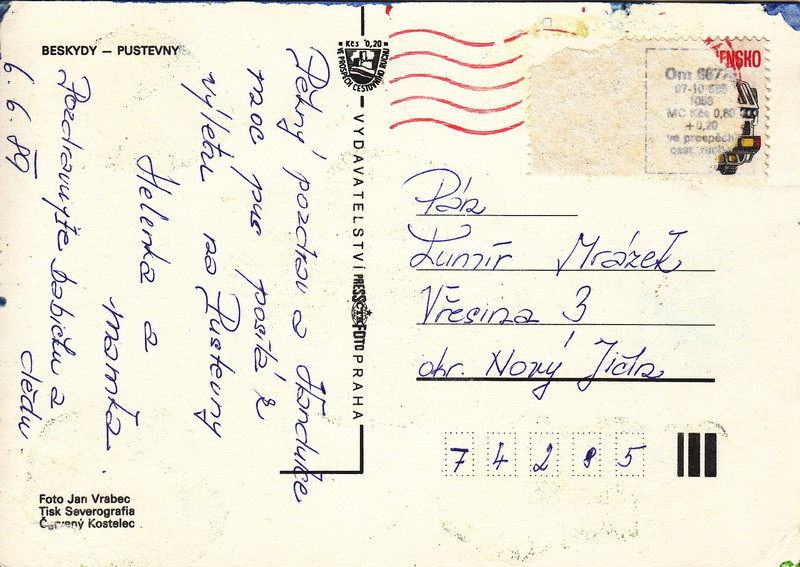 BESKYDY — PUSTEVNY
Pěkný pozdrav a
moc pus posílá z
výletu na Pustevny
Helenka a
mamka.
Pozdravujte babičku a
dědu.
6. 6. 89
Foto Jan Vrabec
Tisk Severografia
Červený Kostelec
Kčs 0,20
VE PROSPĚCH CESTOVNÍHO RUCHU
VYDAVATELSTVÍ PRESSFOTO PRAHA
ENSKO
07-10
1988
MC Kčs 0,80
+ 0,20
ve prospěch
cest. ruchu
Pán
Lumír Mrázek
Vřesina 3
okr. Nový Jičín
7 4 2 8 5